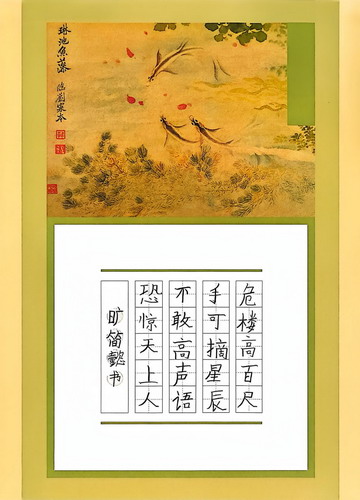 琳池鱼藻
临刘寀本
危楼高百尺
手可摘星辰
不敢高声语
恐惊天上人
旷简懿书